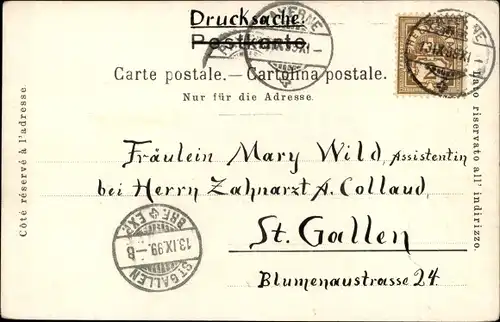 Drucksache.
Postkarte
Carte postale. — Cartolina postale.
Nur für die Adresse.
Côté réservé à l'adresse.
Lato riservato all' indirizzo.
Fräulein Mary Wild, Assistentin
bei Herrn Zahnarzt A. Collaud,
St. Gallen
Blumenaustrasse 24.
BRF. EXP.
13.IX.99.-8
ST. GALLEN
PAYERNE
IX.99.XI-
2